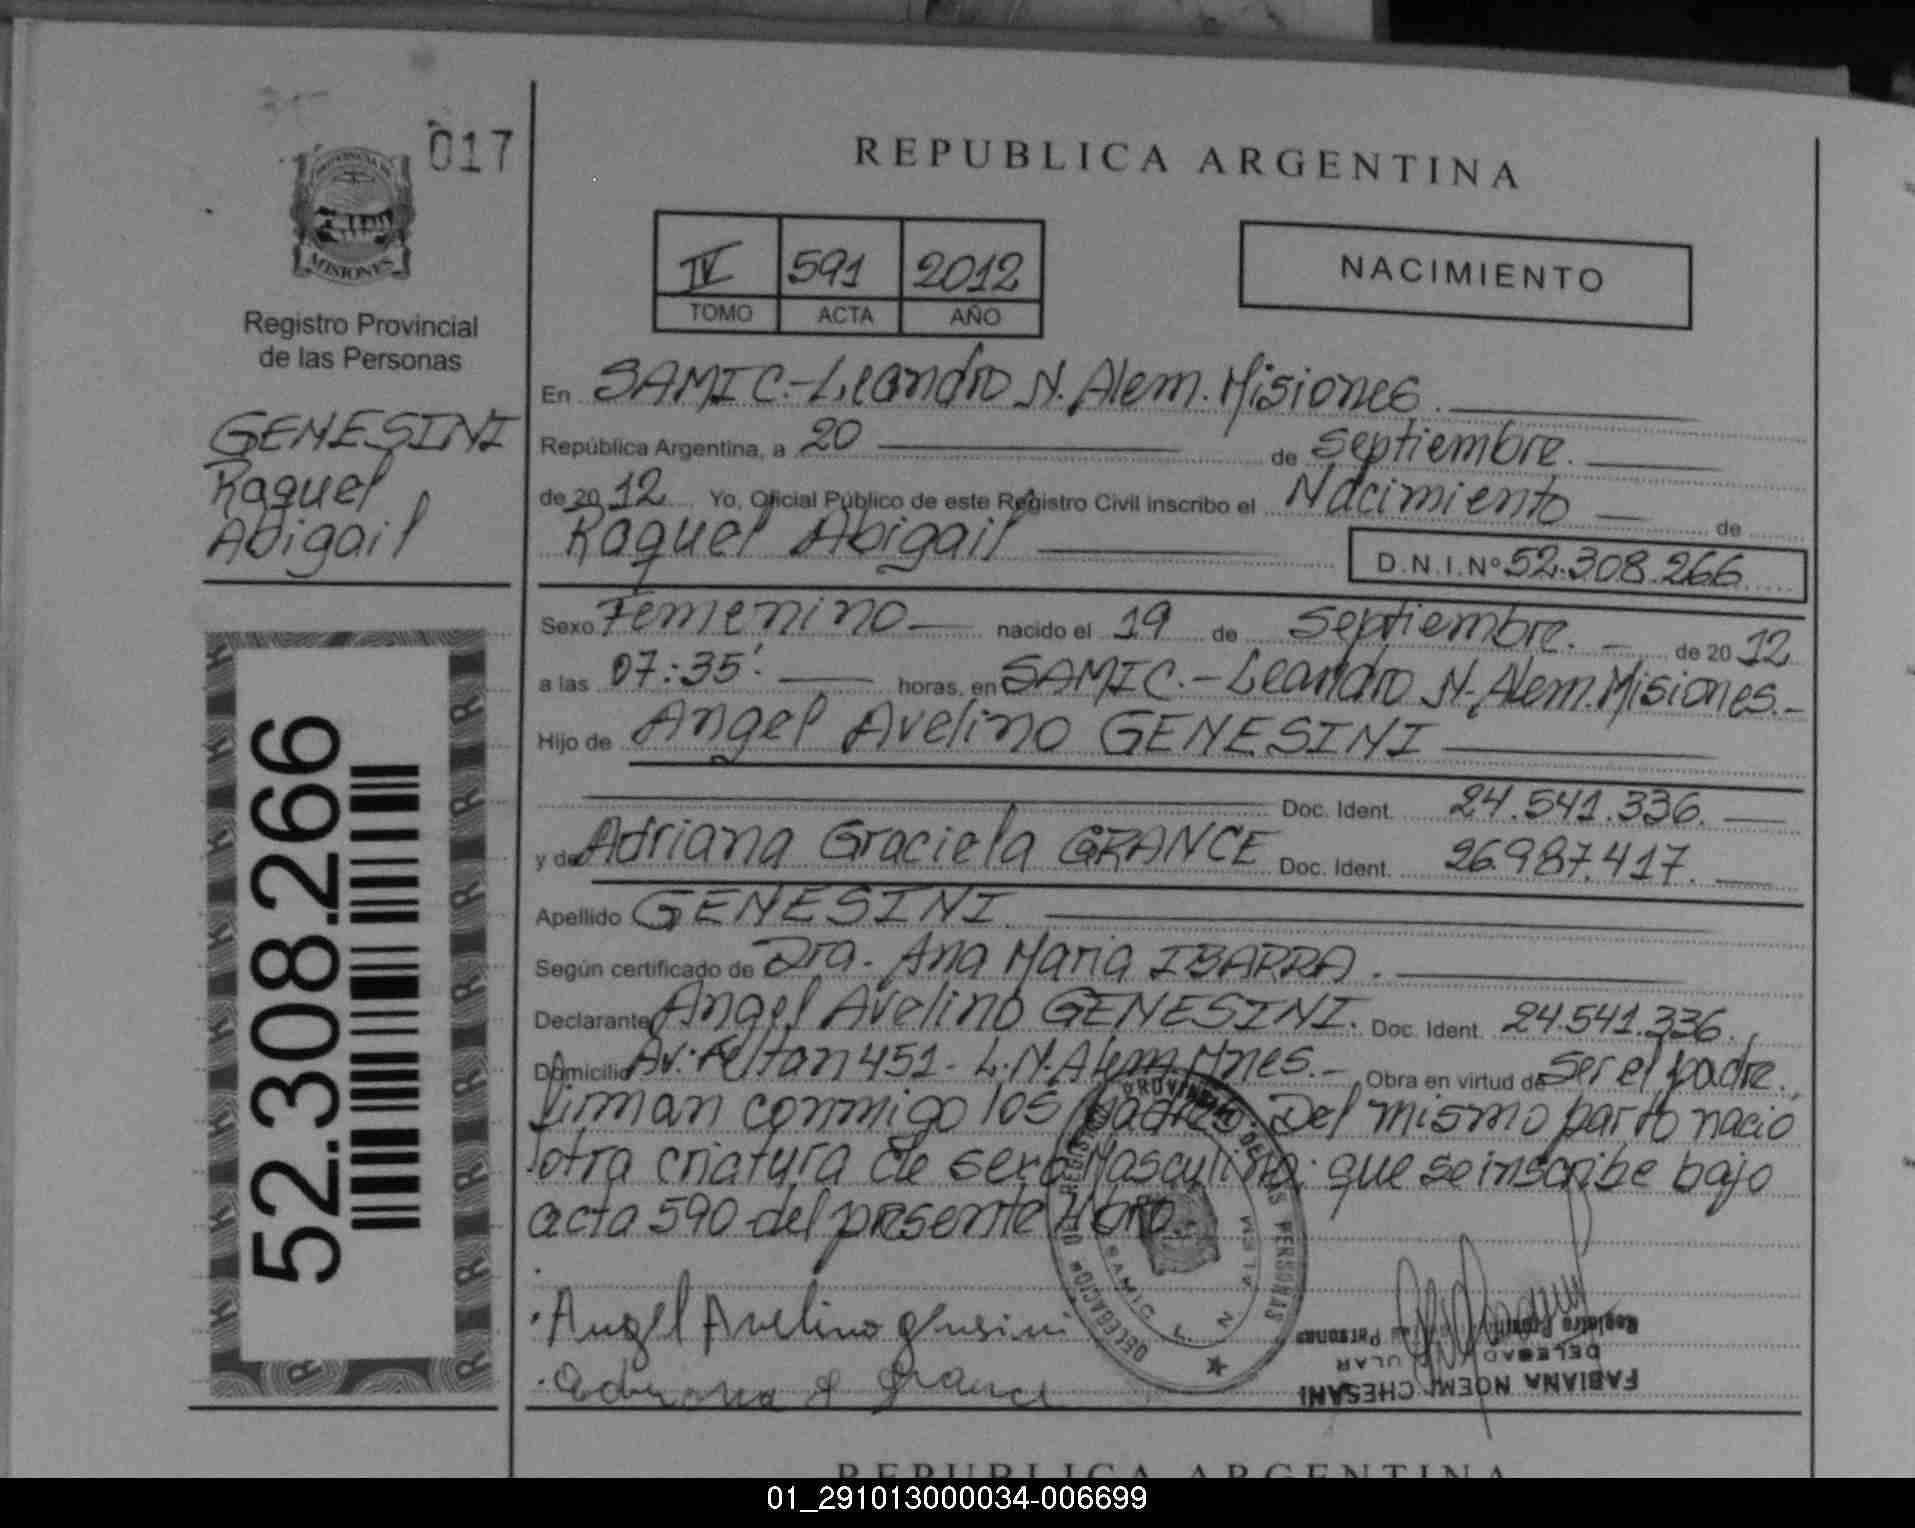 017
PROVINCIA DE
MISIONES
Registro Provincial
de las Personas
GENESINI
Raquel
Abigail
52.308.266
REPUBLICA ARGENTINA
IV 591 2012
TOMO ACTA AÑO
NACIMIENTO
En SAMIC.-Leandro N. Alem. Misiones.
República Argentina, a 20 de septiembre.
de 20 12 Yo, Oficial Público de este Registro Civil inscribo el Nacimiento de
Raquel Abigail
D.N.I.Nº 52.308.266
Sexo Femenino nacido el 19 de Septiembre. de 20 12
a las 07:35'. horas, en SAMIC.-Leandro N. Alem. Misiones.-
Hijo de Angel Avelino GENESINI
Doc. Ident. 24.541.336.
y de Adriana Graciela GRANCE Doc. Ident. 26.987.417.
Apellido GENESINI
Según certificado de Dra. Ana Maria IBARRA.
Declarante Angel Avelino GENESINI. Doc. Ident. 24.541.336.
Domicilio Av. 451- L.N.Alem Mnes.- Obra en virtud de ser el padre.
firman conmigo los padres. Del mismo parto nació
otra criatura de sexo Masculino; que se inscribe bajo
acta 590 del presente libro.
DELEGACION DEL REGISTRO PROVINCIAL DE LAS PERSONAS
SAMIC L N ALEM
Angel Avelino genesini
Adriana G Grance
Registro Provincial de las Personas
DELEGADA TITULAR
FABIANA NOEMI CHESANI
REPUBLICA ARGENTINA
01_291013000034-006699